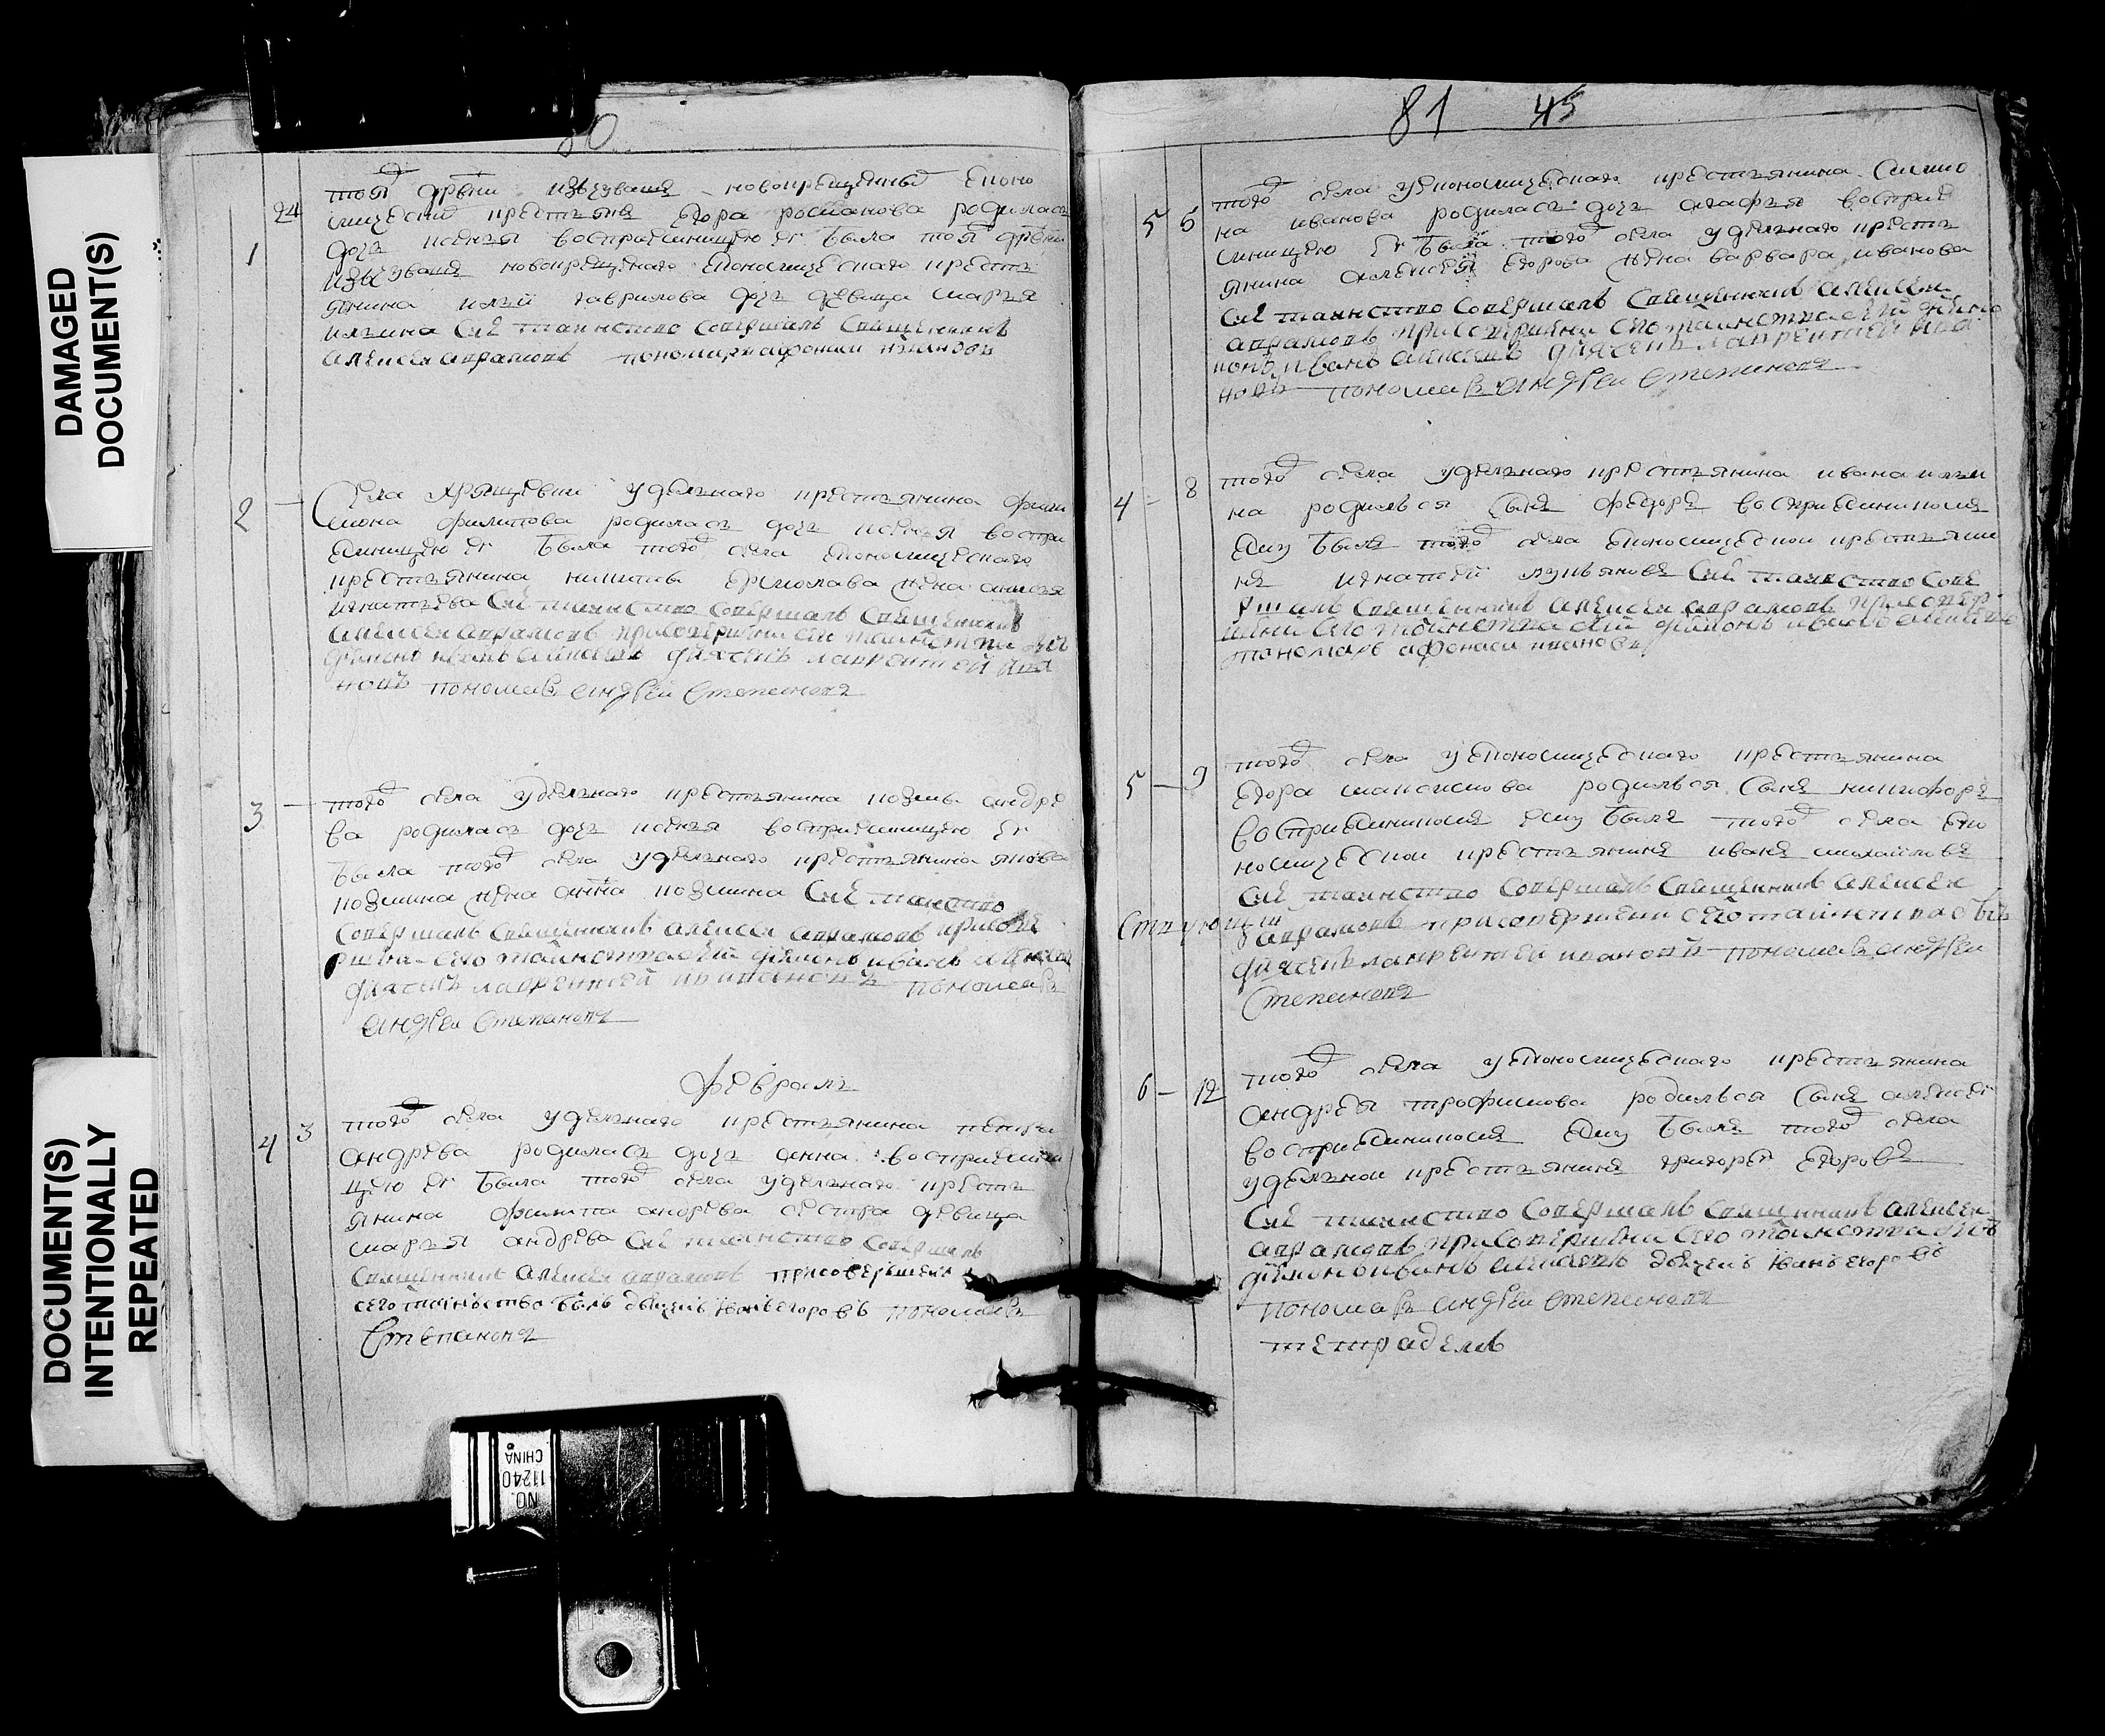 DAMAGED
DOCUMENT(S)
DOCUMENT(S)
INTENTIONALLY
REPEATED
81 45
1 24
той древни новокрещенный Еконо
мический Егора романова родилась
дочь ксения восприемницею ея была той древни
новокрещенаго Економическаго кресть
янина ильи гаврилова дочь девица марья
ильина Сие таинство совершалъ Священникъ
алексеи аврамовъ пономарь афонасии ивановъ
2
Села хрящевки удельнаго крестьянина
филипова родилась дочь ксения воспри
емницею ея была того села Економическаго
крестьянина никиты Ермолаева жена анисья
игнатьева Сие таинство совершалъ Священникъ
алексеи аврамовъ присовершении сего таинства былъ
диконъ иванъ алексеевъ дьячекъ лаврентей ива
новъ пономарь андреи Степановъ
3
того села удельнаго крестьянина козьмы андре
ева родилась дочь ксения восприемницею ея
была того села удельнаго крестьянина якова
козмина жена анна козмина Сие таинство
совершалъ Священникъ алексеи аврамовъ присове
ршени сего таинства былъ диконъ иванъ алексеи
дьячекъ лаврентей ивановъ пономарь
андреи Степановъ
февраль
4 3
того села удельнаго крестьянина петра
андреева родилась дочь анна восприемни
цею ея была того села удельнаго кресть
янина филипа андреева сестра девица
марья андреева Сие таинство совершалъ
Священникъ алексеи аврамовъ присовершении
сего таинъства былъ дьячекъ иванъ егоровъ пономарь
Степановъ
5 6
того села Економическаго крестьянина Симио
на иванова родилась дочь агафья восприе
мницею ея была того села удельнаго кресть
янина алексея Егорова жена варвара иванова
Сие таинство совершалъ Священникъ алексеи
аврамовъ присовершени сего таинства былъ
иванъ алексеевъ дьячекъ лаврентей ива
новъ пономарь андреи Степановъ
4 8
того села удельнаго крестьянина ивана ильи
на родился сынъ федоръ восприемникомъ
ему былъ того села Економической крестьяни
нъ игнатей лукьяновъ Сие таинство сове
ршалъ Священникъ алексеи аврамовъ присовер
шении сего таинства былъ диконъ иванъ алексеевъ
пономарь афонаси ивановъ
5 9
того села Економическаго крестьянина
Егора максимова родился сынъ никифоръ
восприемникомъ ему былъ того села Еко
номической крестьянинъ иванъ михайловъ
Сие таинство совершалъ Священникъ алексеи
аврамовъ присовершении сего таинства былъ
дьячекъ лаврентей ивановъ пономарь андреи
Степановъ
6 12
того села Економическаго крестьянина
андрея трофимова родился сынъ алексей
восприемникомъ ему былъ того села
удельной крестьянинъ григорей Егоровъ
Сие таинство совершалъ Священникъ алексеи
аврамовъ присовершени сего таинства былъ
диконъ иванъ алексеевъ дьячекъ иванъ егоровъ
пономарь андреи Степановъ
NO.
11240
CHINA